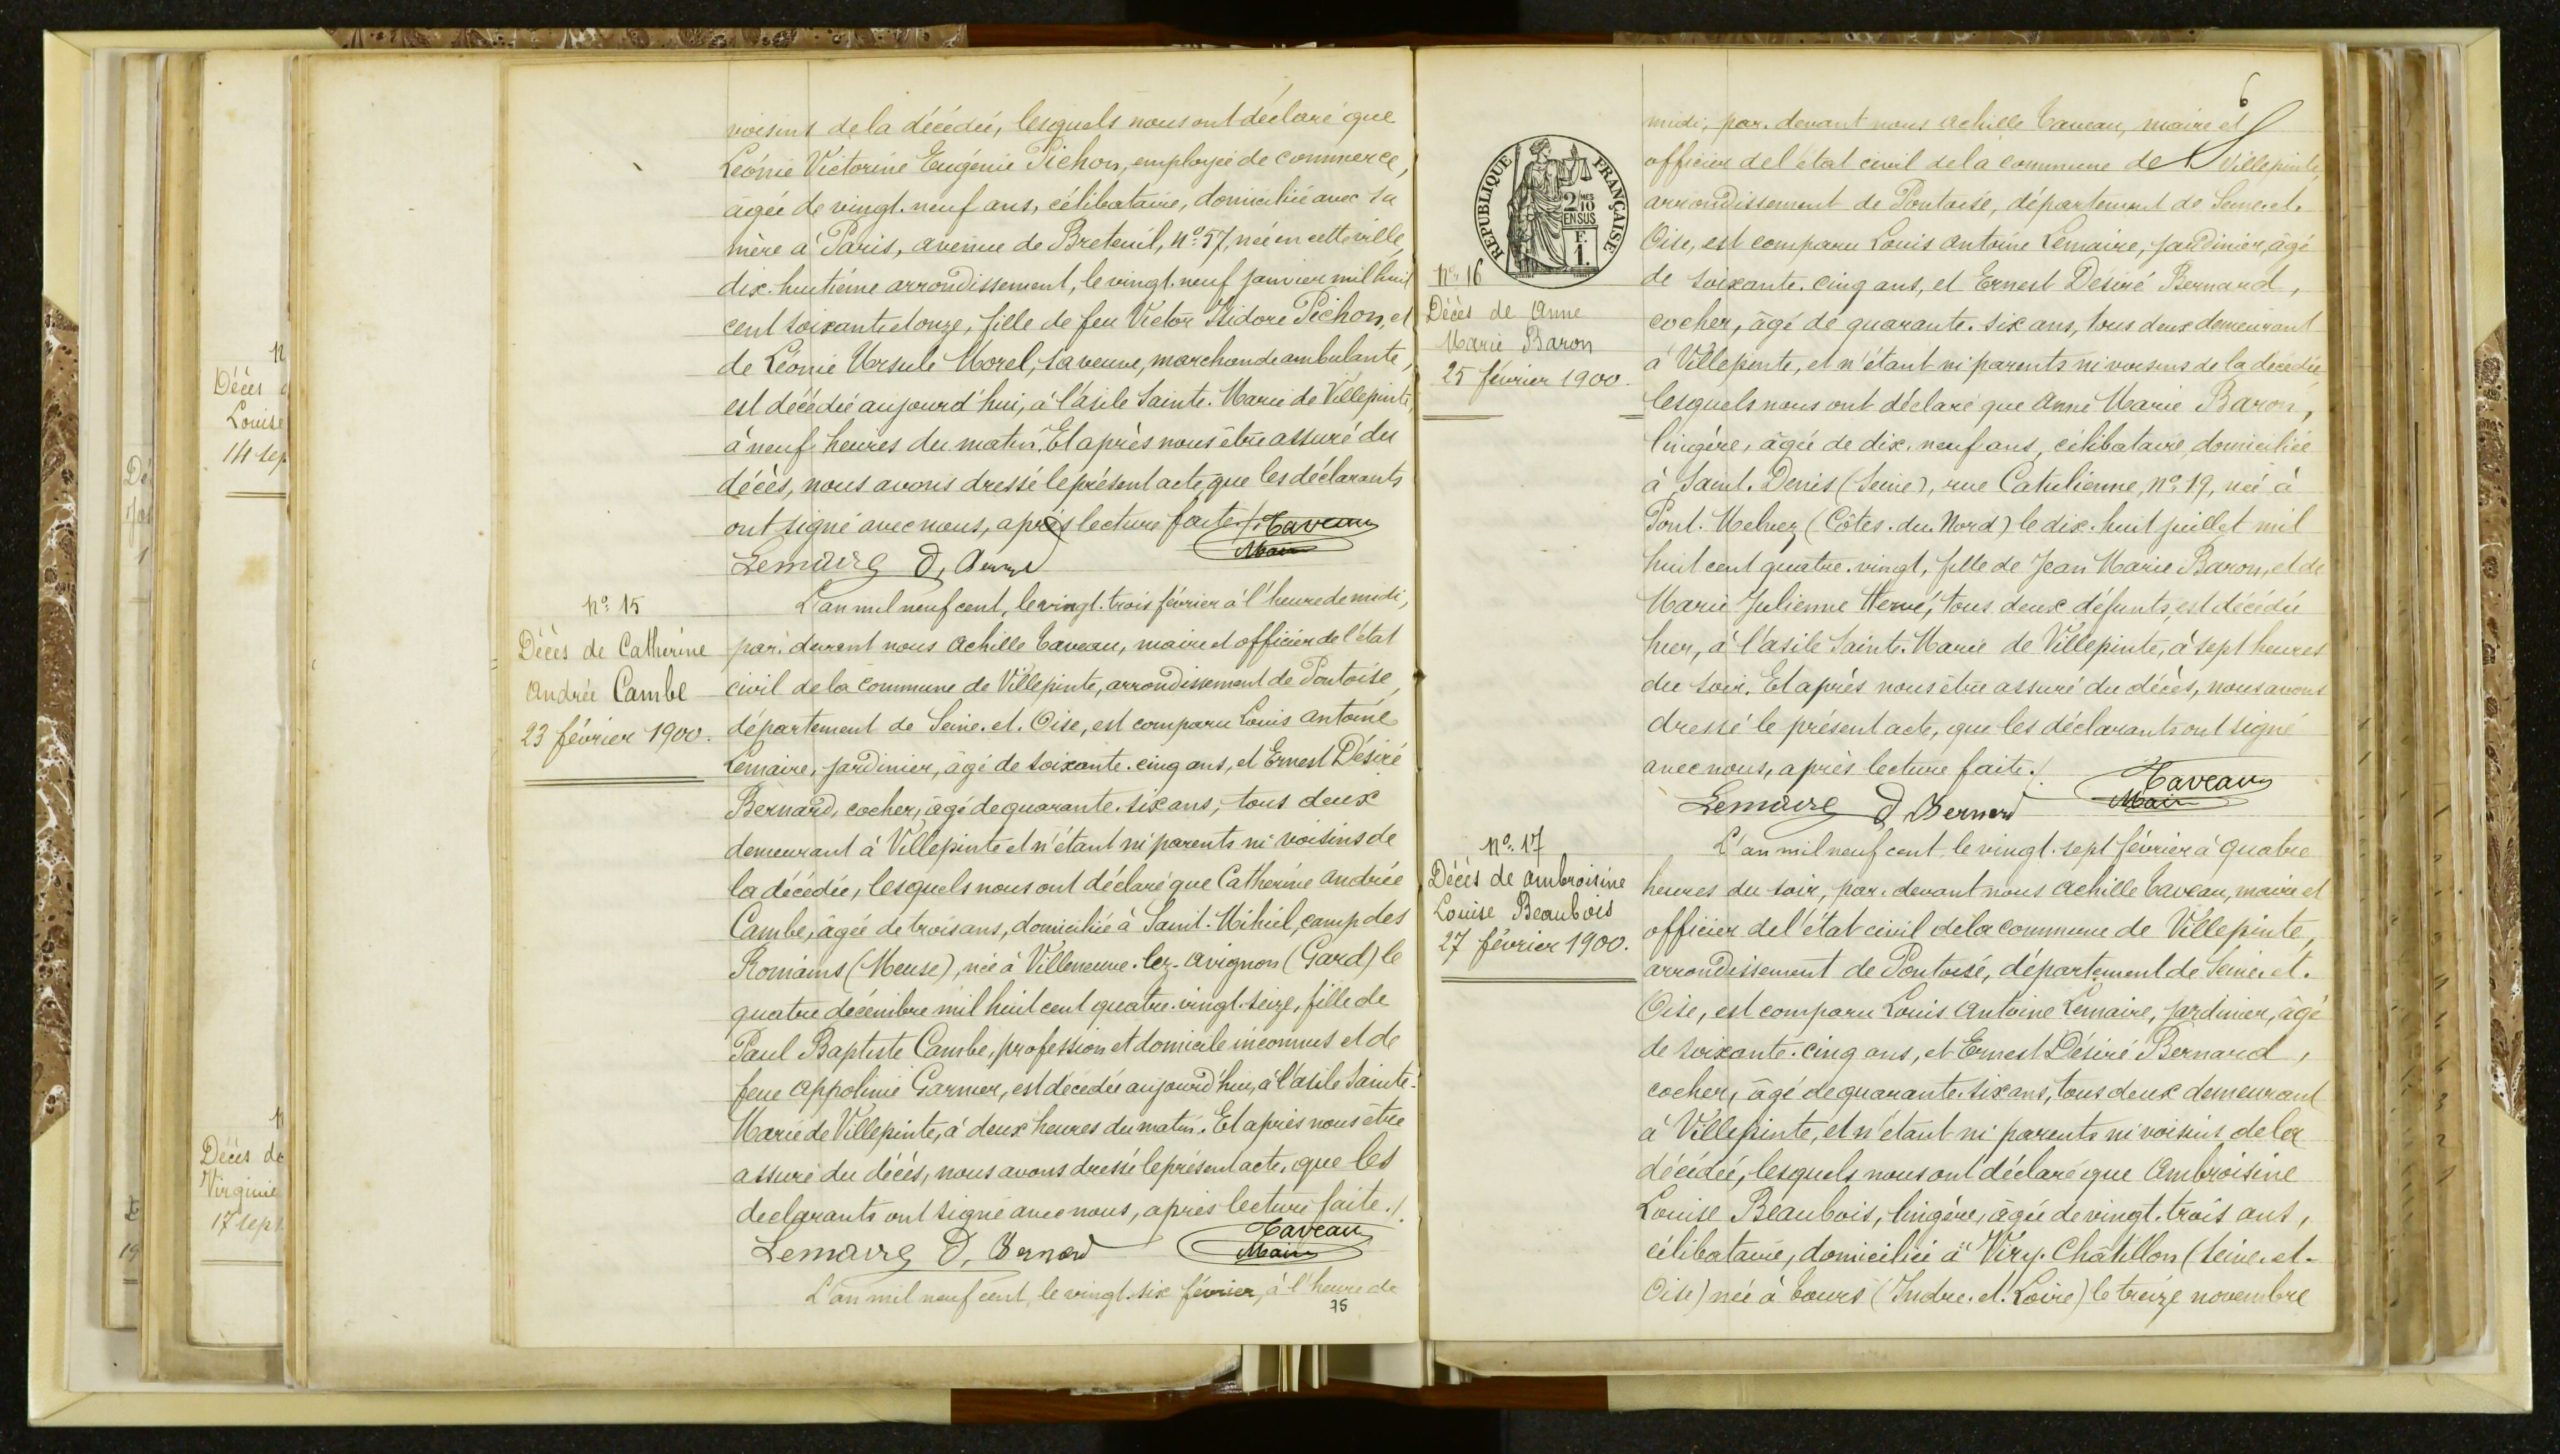 n
Décès d
Louise
14 sep
Dé
n
Décès de
Virginie
17 sept
19
voisins de la décédée, lesquels nous ont déclaré que
Léonie Victorine Eugénie Pichon, employée de commerce,
âgée de vingt-neuf ans, célibataire, domiciliée avec sa
mère à Paris, avenue de Breteuil, N° 57, née en cette ville,
dix-huitième arrondissement, le vingt-neuf janvier mil huit
cent soixante et onze, fille de feu Victor Isidore Pichon, et
de Léonie Ursule Morel, sa veuve, marchande ambulante,
est décédée aujourd'hui, à l'asile Sainte-Marie de Villepinte,
à neuf heures du matin. Et après nous être assuré du
décès, nous avons dressé le présent acte, que les déclarants
ont signé avec nous, après lecture faite./. Taveau
Lemaire D, Maire
N° 15
Décès de Catherine
Andrée Cambe
23 février 1900.
L'an mil neuf cent, le vingt-trois février à l'heure de midi,
par-devant nous Achille Taveau, maire et officier de l'état
civil de la commune de Villepinte, arrondissement de Pontoise,
département de Seine-et-Oise, est comparu Louis Antoine
Lemaire, jardinier, âgé de soixante-cinq ans, et Ernest Désiré
Bernard, cocher, âgé de quarante-six ans, tous deux
demeurant à Villepinte et n'étant ni parents ni voisins de
la décédée, lesquels nous ont déclaré que Catherine Andrée
Cambe, âgée de trois ans, domiciliée à Saint-Mihiel, camp des
Romains (Meuse), née à Villeneuve-lez-Avignon (Gard) le
quatre décembre mil huit cent quatre-vingt-seize, fille de
Paul Baptiste Cambe, profession et domicile inconnus et de
feue Appolinie Garnier, est décédée aujourd'hui, à l'asile Sainte-
Marie de Villepinte, à deux heures du matin. Et après nous être
assuré du décès, nous avons dressé le présent acte, que les
déclarants ont signé avec nous, après lecture faite./.
Lemaire D, Bernard Taveau
Maire
L'an mil neuf cent, le vingt-six février, à l'heure de
75
6
REPUBLIQUE FRANÇAISE
2/10 MES
EN SUS
F.
1.
N° 16
Décès de Anne
Marie Baron
25 février 1900.
midi, par-devant nous Achille Taveau, maire et
officier de l'état civil de la commune de Villepinte,
arrondissement de Pontoise, département de Seine-et-
Oise, est comparu Louis Antoine Lemaire, jardinier, âgé
de soixante-cinq ans, et Ernest Désiré Bernard,
cocher, âgé de quarante-six ans, tous deux demeurant
à Villepinte, et n'étant ni parents ni voisins de la décédée
lesquels nous ont déclaré que Anne Marie Baron,
lingère, âgée de dix-neuf ans, célibataire, domiciliée
à Saint-Denis (Seine), rue Catulienne, N° 19, née à
Pont-Melvez (Côtes-du-Nord) le dix-huit juillet mil
huit cent quatre-vingt, fille de Jean Marie Baron, et de
Marie Julienne Hervé, tous deux défunts, est décédée
hier, à l'asile Sainte-Marie de Villepinte, à sept heures
du soir. Et après nous être assuré du décès, nous avons
dressé le présent acte, que les déclarants ont signé
avec nous, après lecture faite./.
Lemaire D, Bernard Taveau
Maire
N° 17
Décès de Ambroisine
Louise Beaubois
27 février 1900.
L'an mil neuf cent le vingt-sept février à quatre
heures du soir, par-devant nous Achille Taveau, maire et
officier de l'état civil de la commune de Villepinte,
arrondissement de Pontoise, département de Seine-et-
Oise, est comparu Louis Antoine Lemaire, jardinier, âgé
de soixante-cinq ans, et Ernest Désiré Bernard,
cocher, âgé de quarante-six ans, tous deux demeurant
à Villepinte, et n'étant ni parents ni voisins de la
décédée, lesquels nous ont déclaré que Ambroisine
Louise Beaubois, lingère, âgée de vingt-trois ans,
célibataire, domiciliée à Viry-Châtillon (Seine-et-
Oise) née à Tours (Indre-et-Loire) le treize novembre